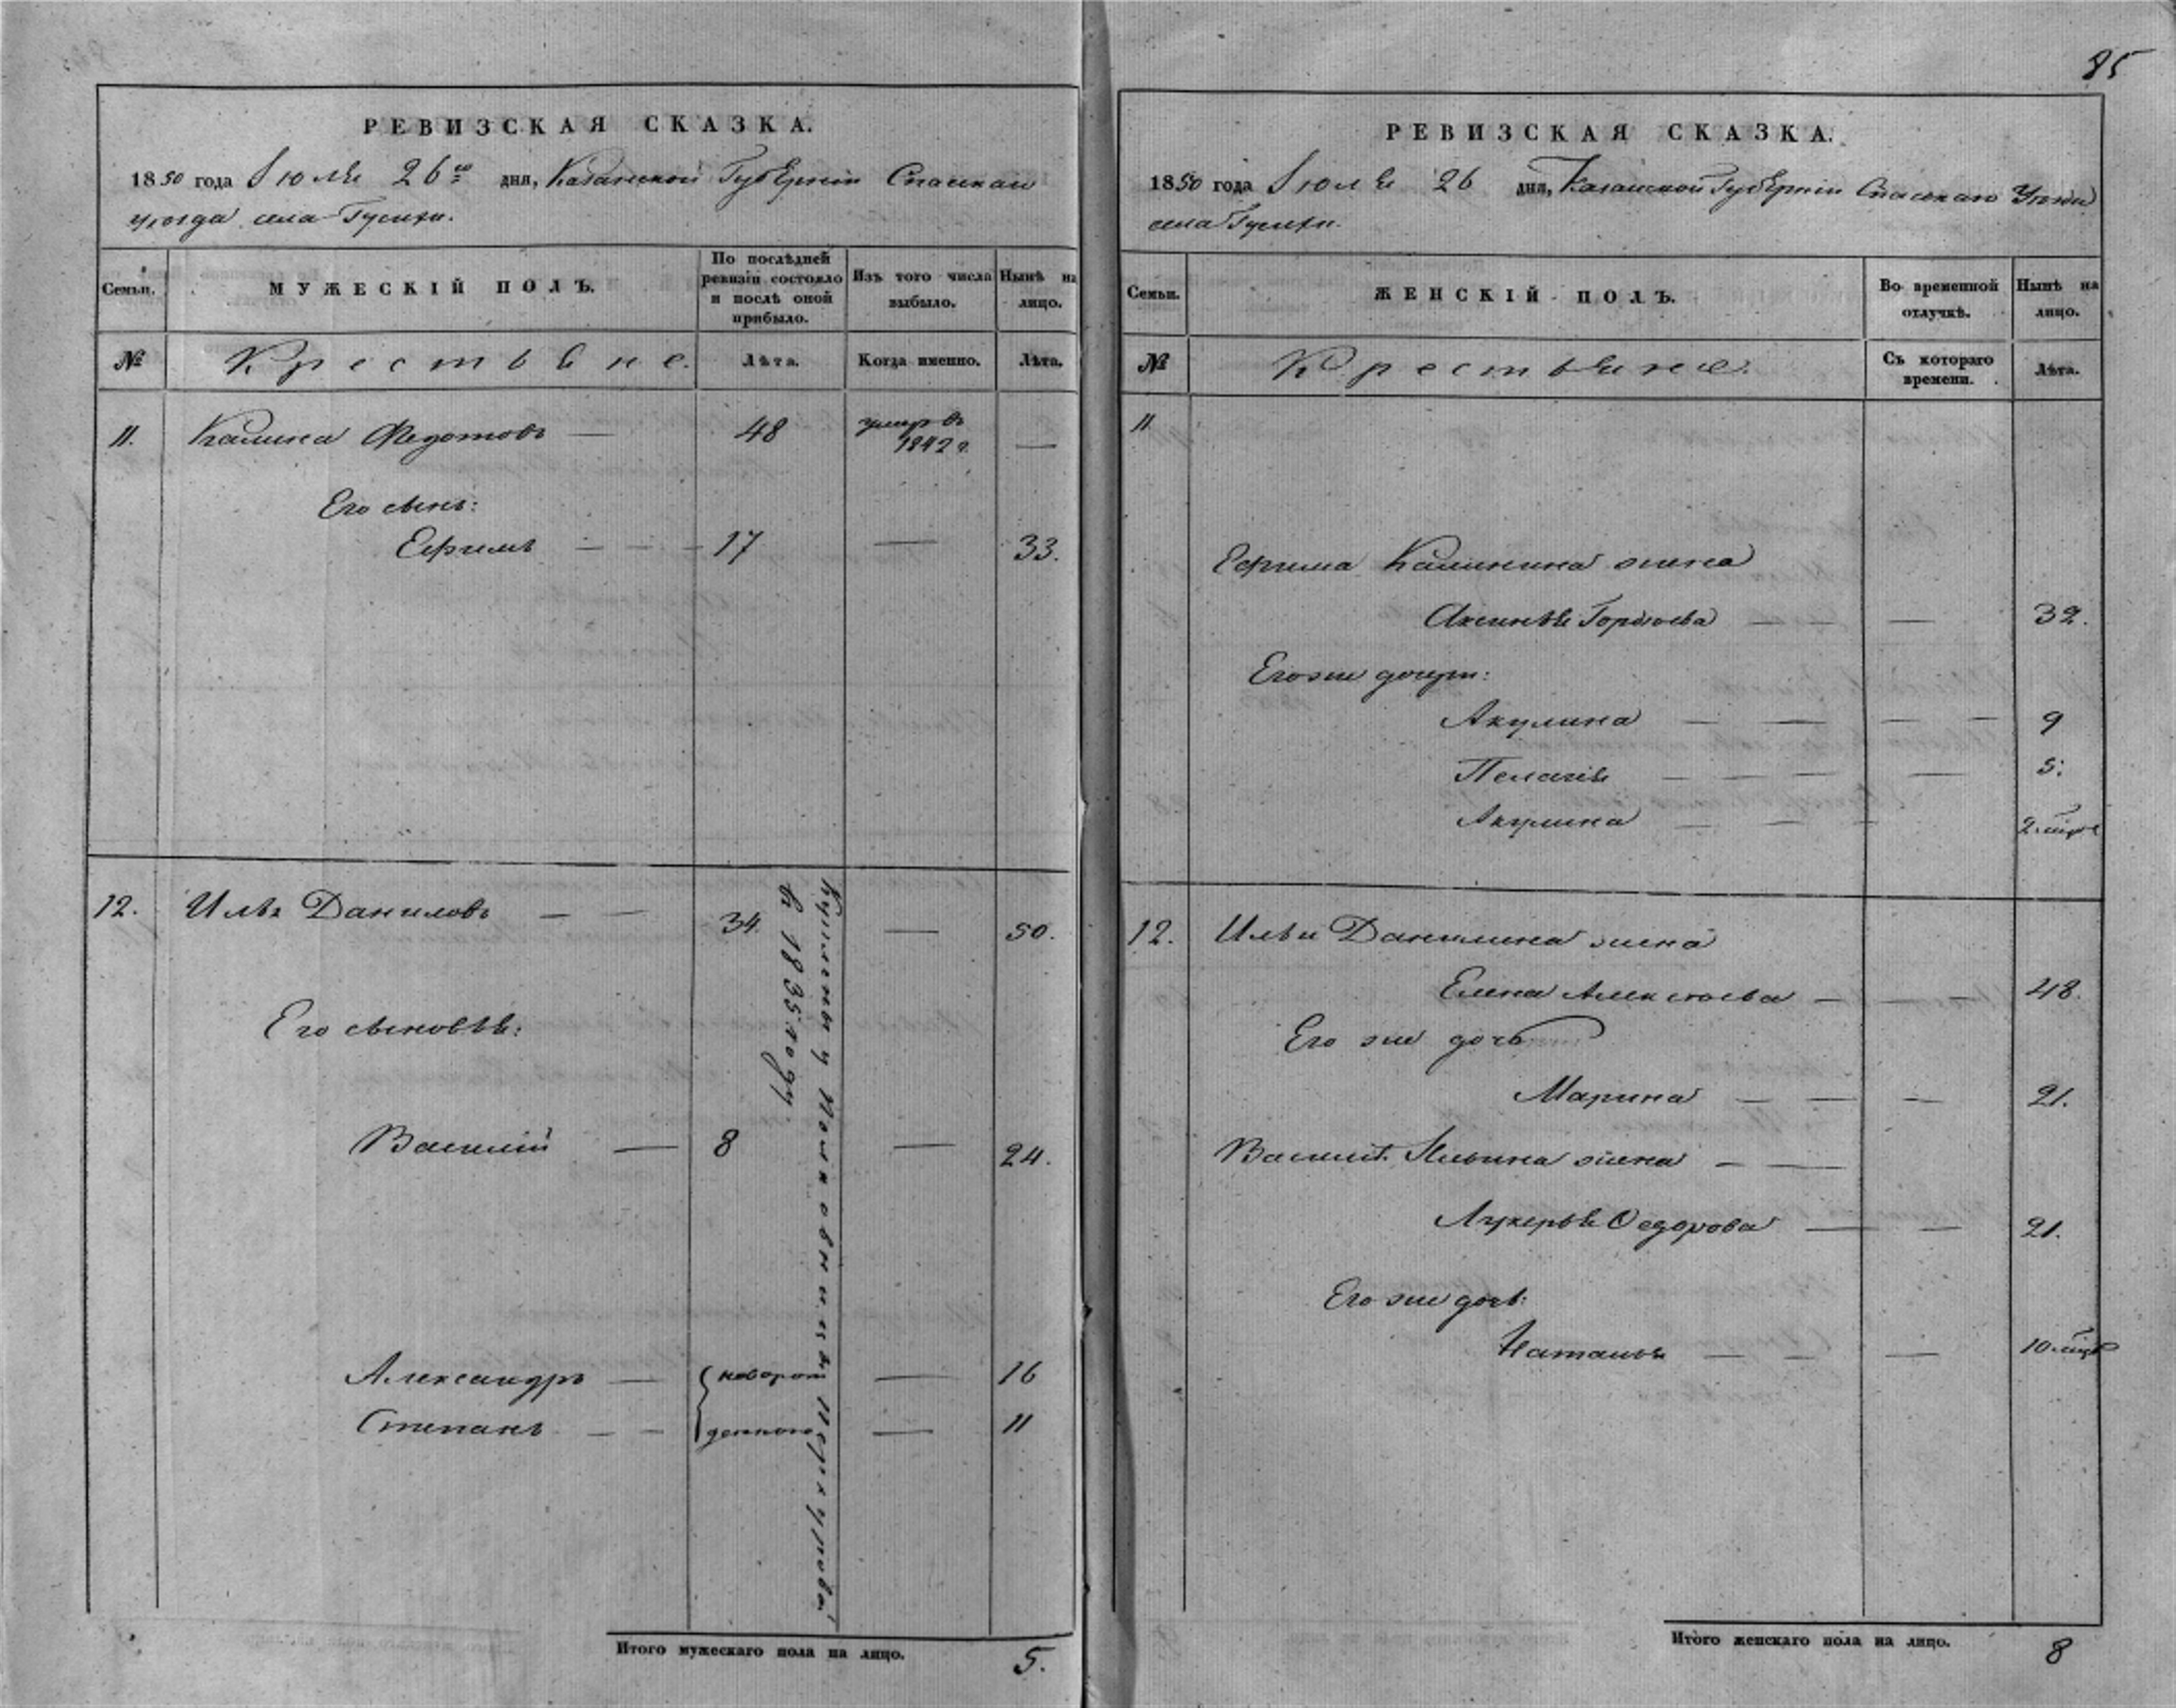 85
РЕВИЗСКАЯ СКАЗКА.
1850 года Іюля 26го дня, Казанской Губерніи Спаскаго
уѣзда села Гусихи.
Семьи. МУЖЕСКІЙ ПОЛЪ. По послѣдней ревизіи состояло и послѣ оной прибыло. Изъ того числа выбыло. Нынѣ на лицо.
№ Крестьяне. Лѣта. Когда именно. Лѣта.
11. Калина Федотовъ — 48 умеръ въ 1842 г. —
Его сынъ:
Ефимъ — — — 17 — 33.
12. Илья Даниловъ — — 34. — 50.
Его сыновья:
Василій — 8 — 24.
Александръ — новорож — 16
Степанъ — — деннаго — 11
Куплены у Полковницы Перхуровой
въ 1835 году
Итого мужескаго пола на лицо. 5.
РЕВИЗСКАЯ СКАЗКА.
1850 года Іюля 26 дня, Казанской Губерніи Спаскаго Уѣзда
села Гусихи.
Семьи. ЖЕНСКІЙ ПОЛЪ. Во временной отлучкѣ. Нынѣ на лицо.
№ Крестьяне. Съ котораго времени. Лѣта.
11
Ефима Калинина жена
Аксинья Гордѣева — — — 32.
Его же дочери:
Акулина — — — — 9
Пелагія — — — — — 5.
Акулина — — — — 2 мѣся
12. Ильи Данилина жена
Елена Алексѣева — — — 48.
Его же дочь
Марина — — — 21.
Василія Ильина жена — —
Лукерья Федорова — — 21.
Его же дочь:
Наталья — — — 10 мѣся
Итого женскаго пола на лицо. 8